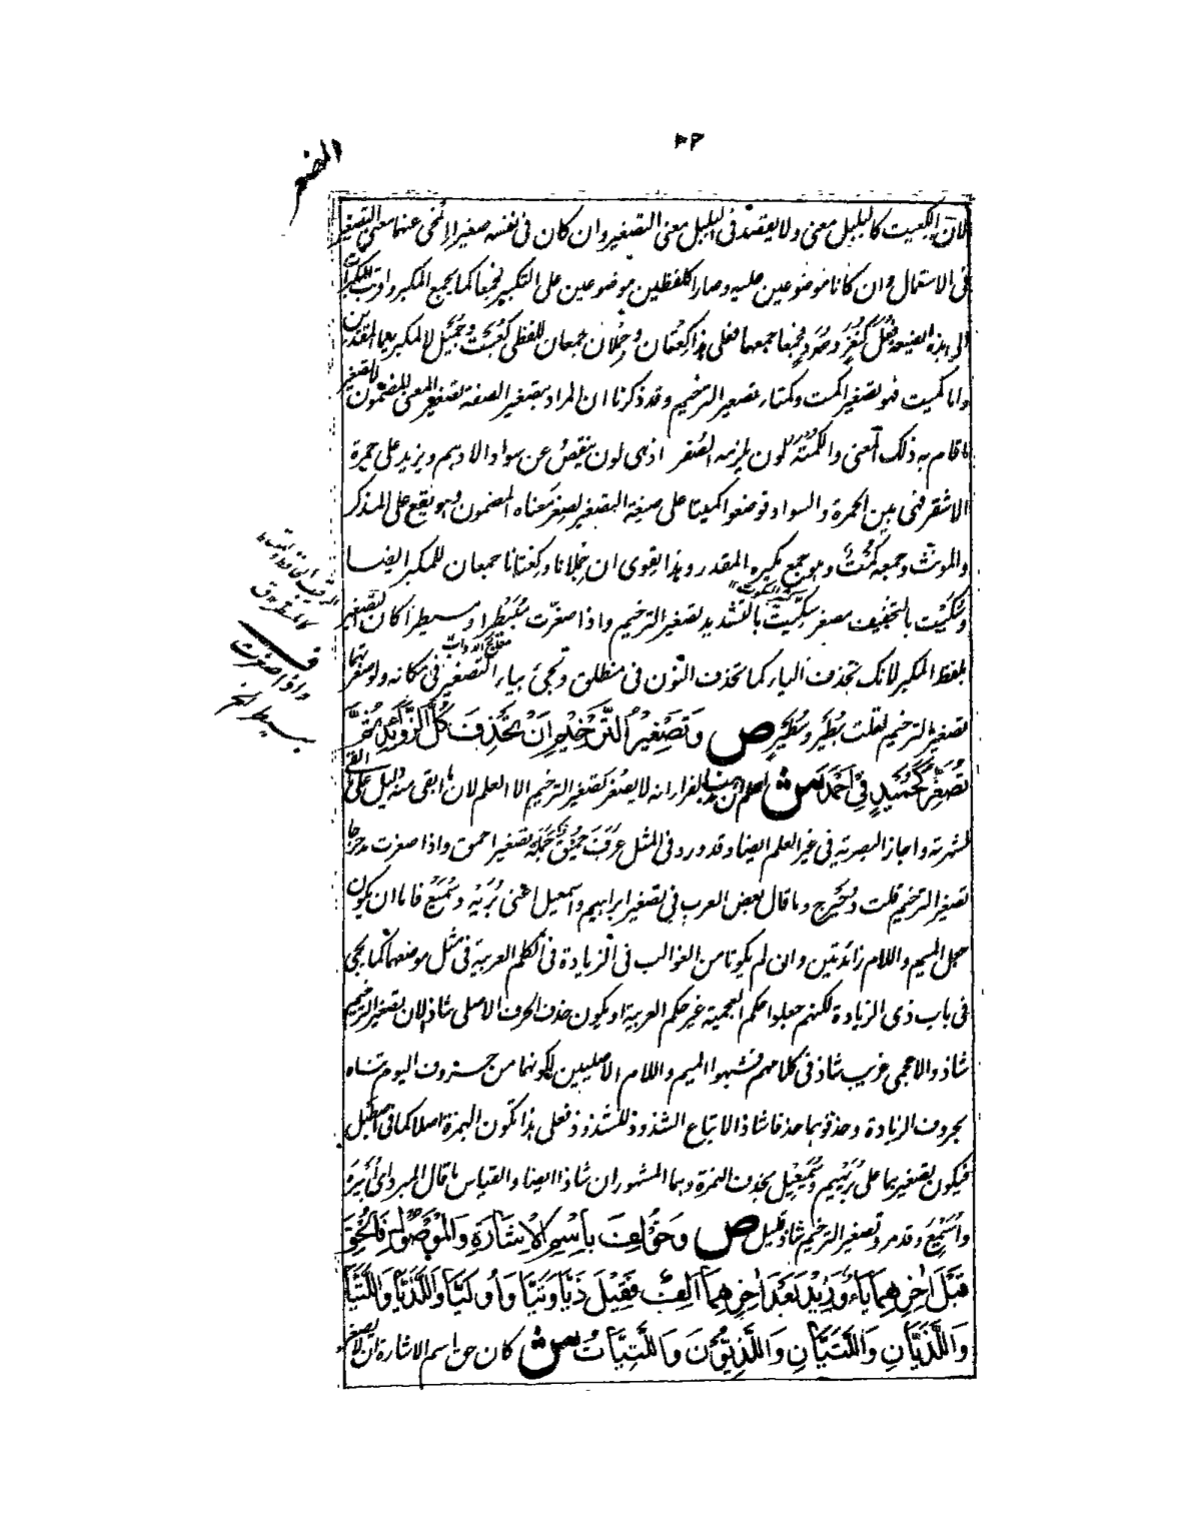 لان الكعيت كالبلبل معنى ولا يقصد فى البلبل معنى التصغير وان كان فى نفسه صغيرا انمحى عنهما معنى التصغير
فى الاستعمال وان كانا موضوعين عليه وصارا كلفظين موضوعين على التكبير فجمعا كما يجمع المكبر واقرب المكبرات
الى هذه الصيغة فعل كنغر وصرد فجمعا جمعهما فعلى هذا كعتان وجملان جمعان للفظى كعيت وجميل لا لمكبريهما المقدرين
واما كميت فهو تصغير اكمت وكمتاء تصغير الترخيم وقد ذكرنا ان المراد بتصغير الصفة تصغير المعنى المضمون لا تصغير
ما قام به ذلك المعنى والكمتة لون يلزمه الصغر اذ هى لون ينقص عن سواد الادهم ويزيد على حمرة
الاشقر فهى بين الحمرة والسواد فوضعوا كميتا على صيغة التصغير لصغر معناه المضمون وهو يقع على المذكر
والمونث وجمعه كمت وهو جمع مكبره المقدر وهذا يقوى ان جملانا وكعتانا جمعان للمكبر ايضا
وسكيت بالتخفيف مصغر سكيت بالتشديد تصغير الترخيم واذا صغرت مبيطرا ومسيطرا كان التصغير
بلفظ المكبر لانك تحذف الياء كما تحذف النون فى منطلق وتجئ بياء التصغير فى مكانه ولو صغرتهما
تصغير الترخيم لقلت بطير وسطير ص وَتَصْغِيْرُ التَّرْخِيْمِ اَنْ يُحْذَفَ كُلُّ الزَّوَائِدِ ثُمَّ
يُصَغَّرُ كَحُمَيْدٍ فِى اَحْمَدَ ش اعلم ان مذهب الفراء انه لا يصغر تصغير الترخيم الا العلم لان ما ابقى منه دليل على ما القى
لشهرته واجاز البصرية فى غير العلم ايضا وقد ورد فى المثل عرف حميق جمله تصغير احمق واذا صغرت مدحرجا
تصغير الترخيم قلت دحيرج وما قال بعض العرب فى تصغير ابراهيم واسمعيل اعنى بريه وسميع فاما ان يكون
جعل الميم واللام زائدتين وان لم يكونا من الغوالب فى الزيادة فى الكلم العربية فى مثل موضعهما كما يجئ
فى باب ذى الزيادة لكنهم جعلوا حكم العجمية غير حكم العربية او يكون حذف الحرف الاصلى شاذا لان تصغير الترخيم
شاذ والاعجمى غريب شاذ فى كلامهم فشبهوا الميم واللام الاصليين لكونهما من حروف اليوم تنساه
بحروف الزيادة وحذفوهما حذفا شاذا لاتباع الشذوذ للشذوذ فعلى هذا تكون الهمزة اصلا كما فى اصطبل
فيكون تصغيرهما على بريهيم وسميعيل بحذف الهمزة وهما المشهوران شاذا ايضا والقياس ما قال المبرد اى ابيره
واسيمع وقد مر وتصغير الترخيم شاذ قليل ص وَخُوْلِفَ بِاِسْمِ الْاِشَارَةِ وَالْمَوْصُوْلِ فَاُلْحِقَ
قَبْلَ اٰخِرِهِمَا يَاءٌ وَزِيْدَ بَعْدَ اٰخِرِهِمَا اَلِفٌ فَقِيْلَ ذَيَّا وَتَيَّا وَاُولَيَّا وَاللَّذَيَّا وَاللَّتَيَّا
وَاللَّذَيَّانِ وَاللَّتَيَّانِ وَاللَّذَيُّوْنَ وَاللَّتَيَّاتُ ش كان حق اسم الاشارة ان لا يصغر